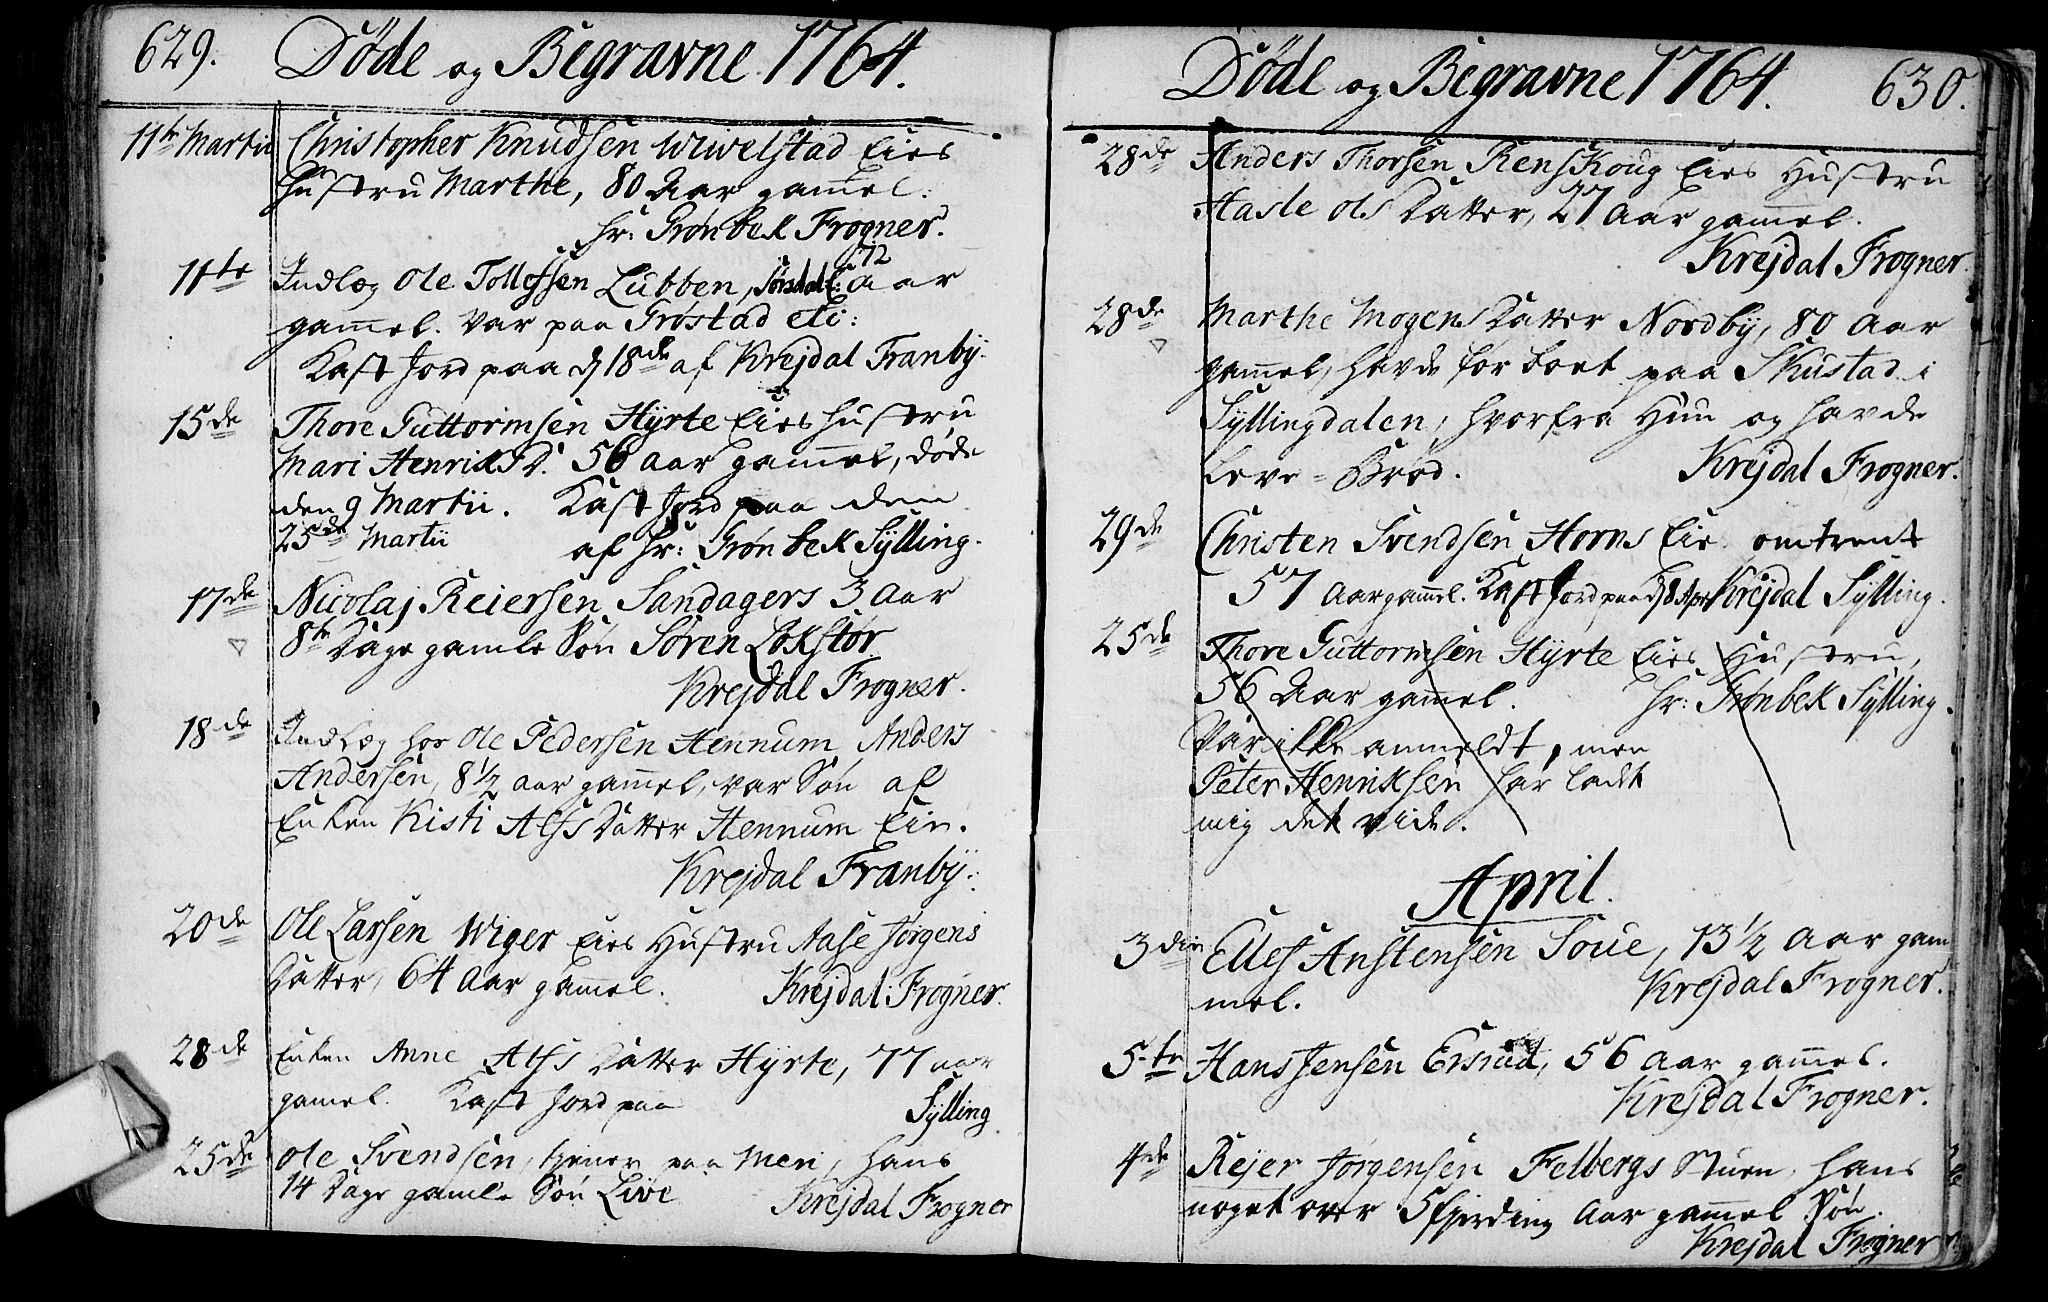 629. Döde og Begravne 1764.
11te Martii Christopher Knudsen Wivelstad Eies
Hustru Marthe, 80 Aar gam̄el.
Hr: Grönbek Frogner.
11te Indlæg Ole Tollefsen Lubben, 72 aar
gam̄el. Var paa Gröstad
Kast Jord paa d 18de af Krejdal Franbÿ.
15de Thore Guttormsen Hÿrte Eies Hustru
Mari HenriksD. 56 aar gam̄el, döde
den 9 Martii. Kast Jord paa den
25de Martii af Hr: Grönbek Sÿlling.
17de Nicolaj Reiersen Sandagers 3 Aar
8te Dage gamle Sön Sören Lokstör
Krejdal Frogner.
18de Indlæg hos Ole Pedersen Hennum Anders
Andersen, 8 1/2 aar gam̄el, var Sön af
Enken Kisti Alfs Datter Hennum Eie.
Krejdal Franbÿ.
20de Ole Larsen Wiger Eies Hustru Aase Jörgens
Datter, 64 Aar gam̄el. Krejdal Frogner.
28de Enken Anne Alfs Datter Hÿrte, 77 aar
gamel. Kast Jord paa Sÿlling
25de Ole Svendsen, tjener paa Meri, hans
14 Dage gamle Sön Live Krejdal Frogner
Döde og Begravne 1764. 630.
28de Anders Thorsen Renskoug Eies Hustru
Aasle Ols Datter, 27 Aar gam̄el.
Krejdal Frogner.
28de Marthe Mogens Datter Nordbÿ, 80 Aar
gam̄el, havde för boet paa Skustad i
Sÿllingdalen, hvorfra Hun og havde
Leve-Bröd. Krejdal Frogner.
29de Christen Svendsen Horns Eie omtrent
57 Aar gam̄el. Kast Jord paa d 8 Apr Krejdal Sÿlling.
25de Thore Guttormsen Hÿrte Eies Hustru,
56 Aar gam̄el. Hr: Grönbek Sÿlling.
Var ikke anmeldt, men
Peter Henriksen har ladt
mig det vide.
April.
3die Ellef Anstensen Soue, 13 1/2 Aar gam
mel. Krejdal Frogner.
5te Hans Jensen Ersrud, 56 Aar gam̄el.
Krejdal Frogner.
4de Rejer Jörgensen Felbergs Stuen, hans
noget over 5 fjerding Aar gam̄el Sön.
Krejdal Frogner